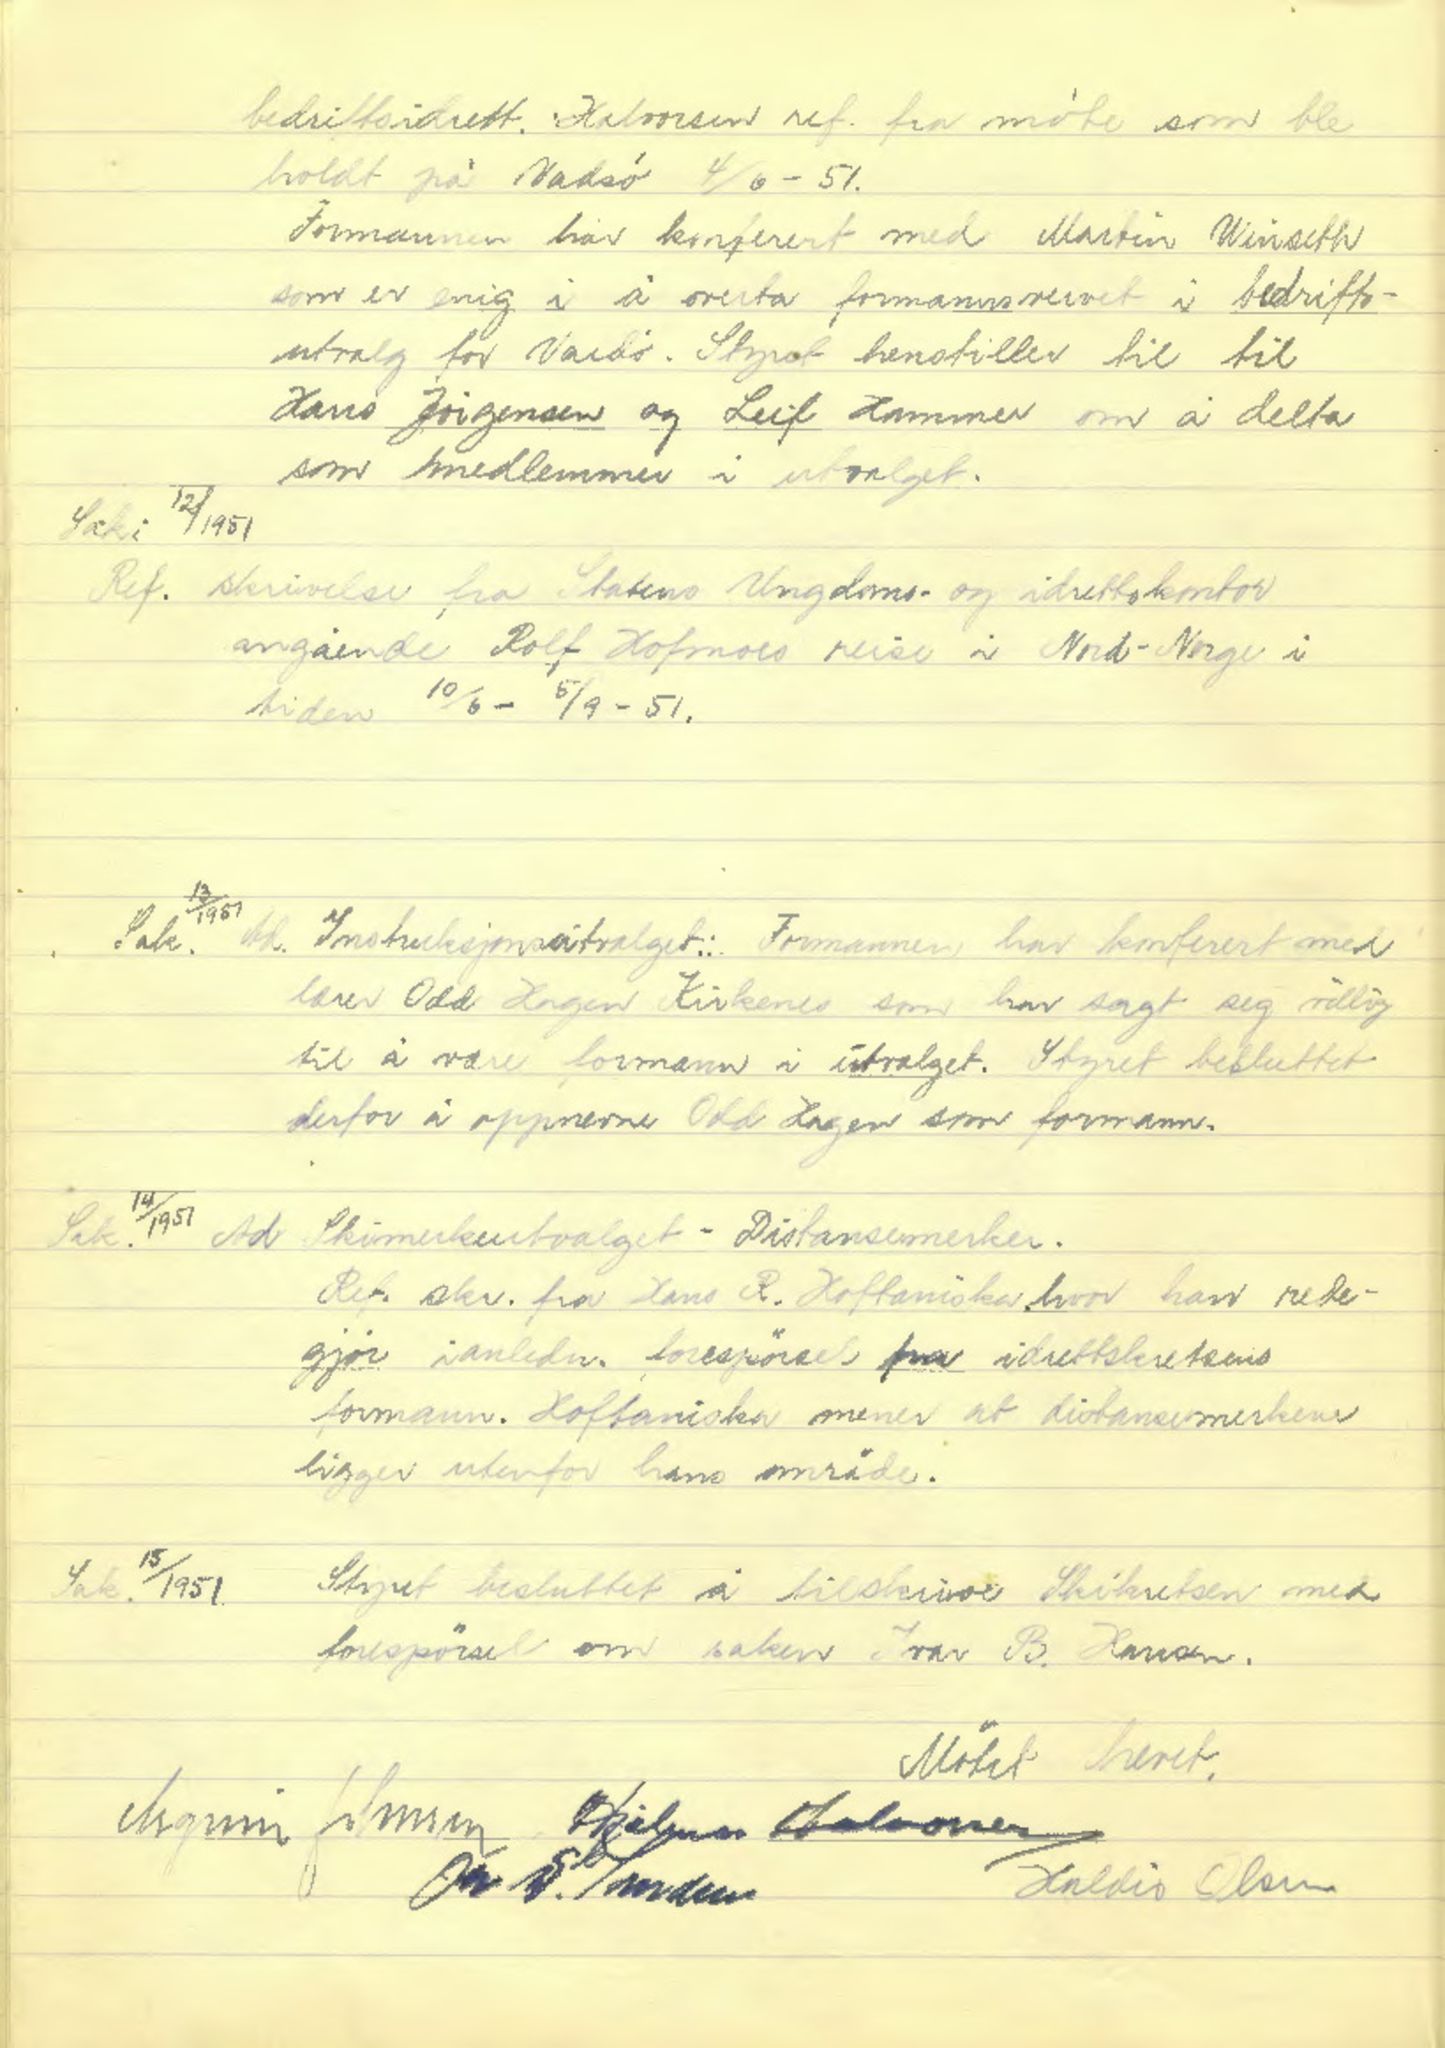 bedriftsidrett. Halvorsen ref. fra möte som ble
holdt på Vadsö 4/6 - 51.
Formannen har konferert med Martin Winseth
som er enig i å overta formannsvervet i bedrifts-
utvalg for Vardö. Styret henstiller til til
Hans Jörgensen og Leif Hammer om å delta
som medlemmer i utvalget.
Sak: 12/1951
Ref. skrivelse fra Statens Ungdoms- og idrettskontor
angående Rolf Hofmoes reise i Nord-Norge i
tiden 10/6 - 5/9 - 51.
Sak. 13/1951 Ad. Instruksjonsutvalget: Formannen har konferert med
lærer Odd Hagen Kirkenes som har sagt seg villig
til å være formann i utvalget. Styret besluttet
derfor å oppnevne Odd Hagen som formann.
Sak. 14/1951 Ad Skimerkeutvalget - Distansemerker.
Ref. skr. fra Hans R. Hoftaniska, hvor han rede-
gjör ianledn. forespörsel fra idrettskretsens
formann. Hoftaniska mener at distansemerkene
ligger utenfor hans område.
Sak. 15/1951 Styret besluttet å tilskrive Skikretsen med
forespörsel om saken Ivar B. Hansen.
Mötet hevet.
Hjalmar Halvorsen
Haldis Olsen